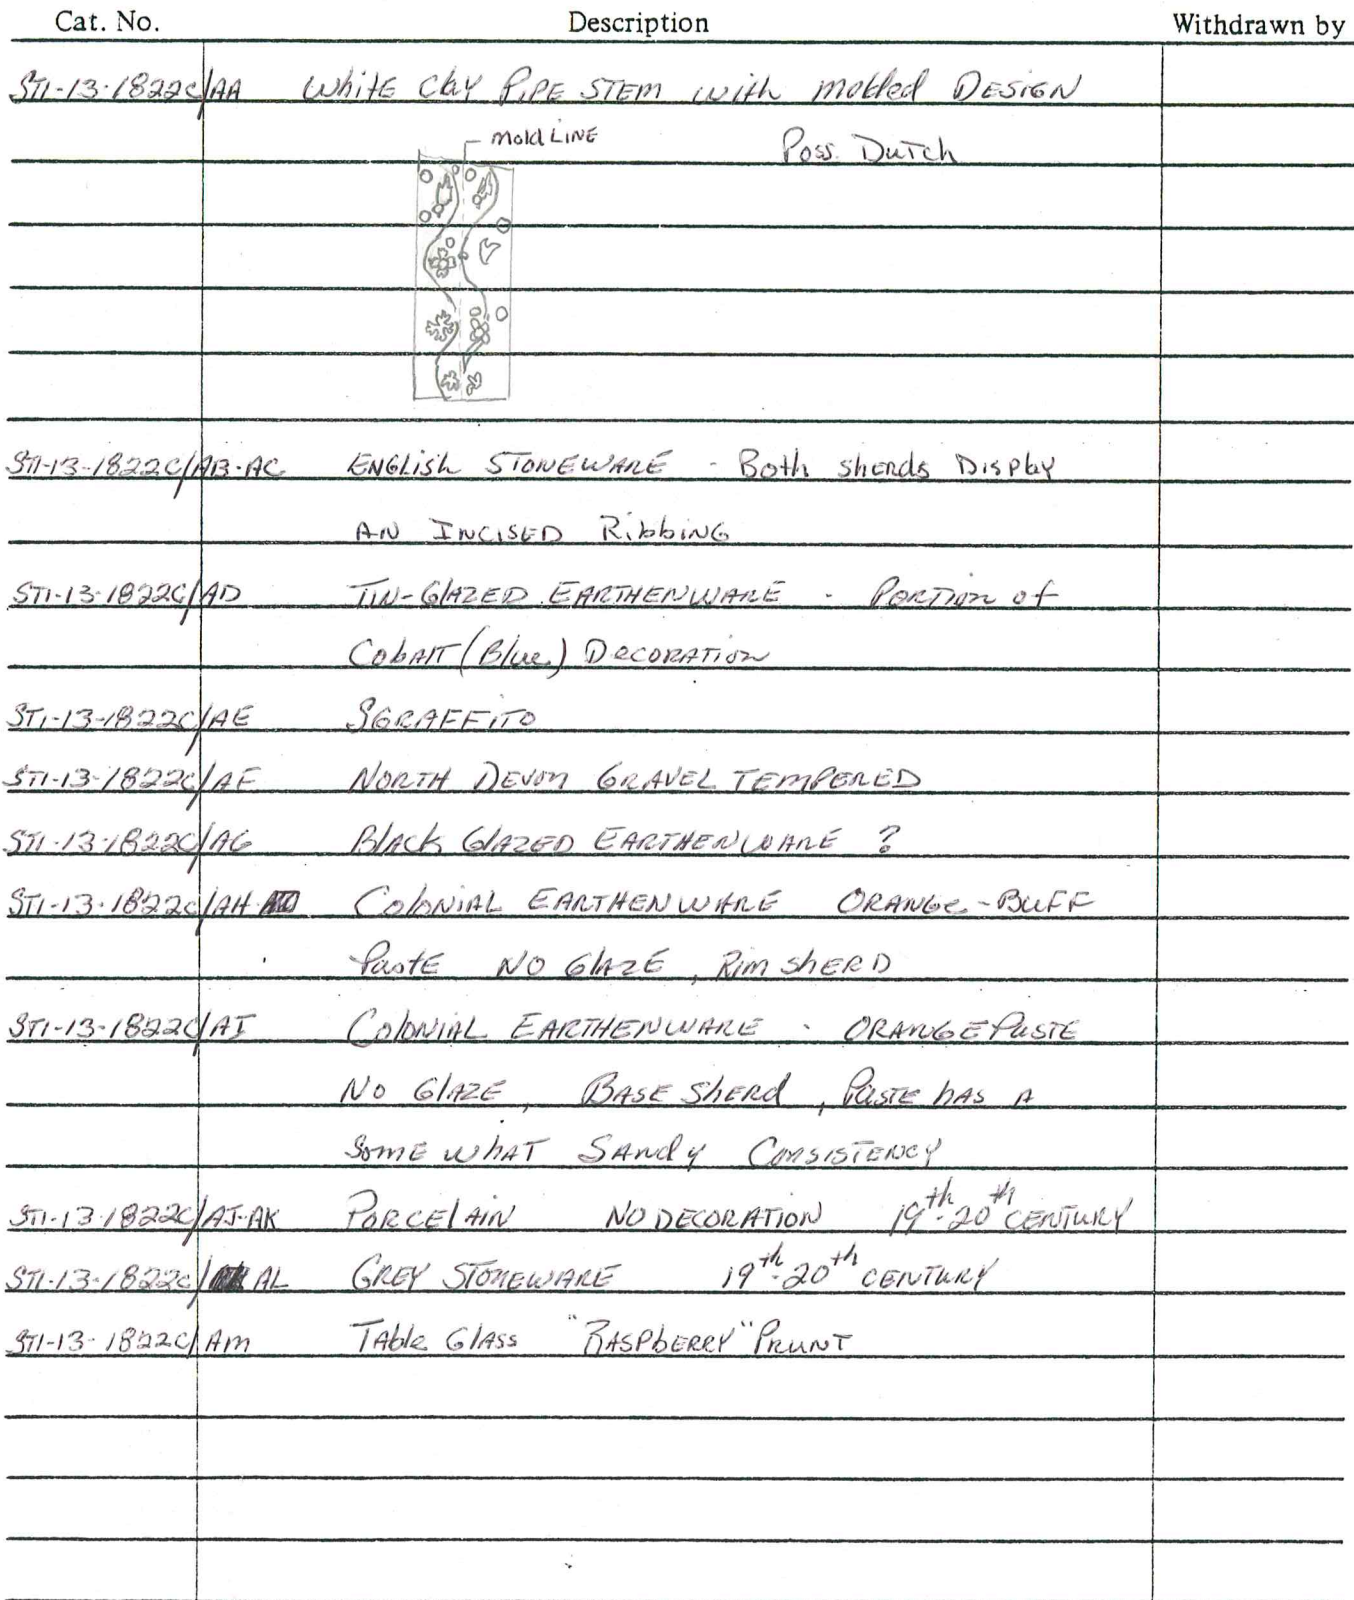 Cat. No. Description Withdrawn by
ST1-13-1822C/AA White Clay Pipe Stem with molded Design
mold Line
Poss. Dutch
ST1-13-1822C/AB-AC English Stoneware - Both sherds Display
An Incised Ribbing
ST1-13-1822C/AD Tin-Glazed Earthenware - Portion of
Cobalt (Blue) Decoration
ST1-13-1822C/AE Sgraffito
ST1-13-1822C/AF North Devon Gravel Tempered
ST1-13-1822C/AG Black Glazed Earthenware ?
ST1-13-1822C/AH Colonial Earthenware Orange-Buff
Paste No Glaze, Rim sherd
ST1-13-1822C/AI Colonial Earthenware - Orange Paste
No Glaze, Base Sherd, Paste has a
Somewhat Sandy Consistency
ST1-13-1822C/AJ-AK Porcelain No Decoration 19th-20th Century
ST1-13-1822C/AL Grey Stoneware 19th-20th Century
ST1-13-1822C/AM Table Glass "Raspberry" Prunt